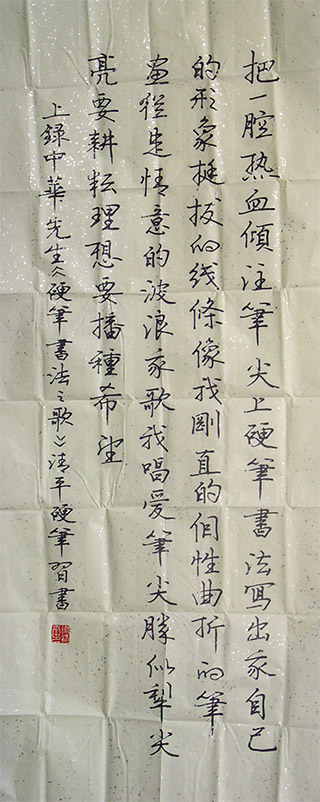 把一腔热血傾注筆尖上硬筆書法寫出我自己
的形象挺拔的线條像我剛直的個性曲折的筆
畫縱是情意的波浪我歌我唱愛筆尖勝似犁尖
亮要耕耘理想要播種希望
上録中華先生《硬筆書法之歌》清平硬筆習書